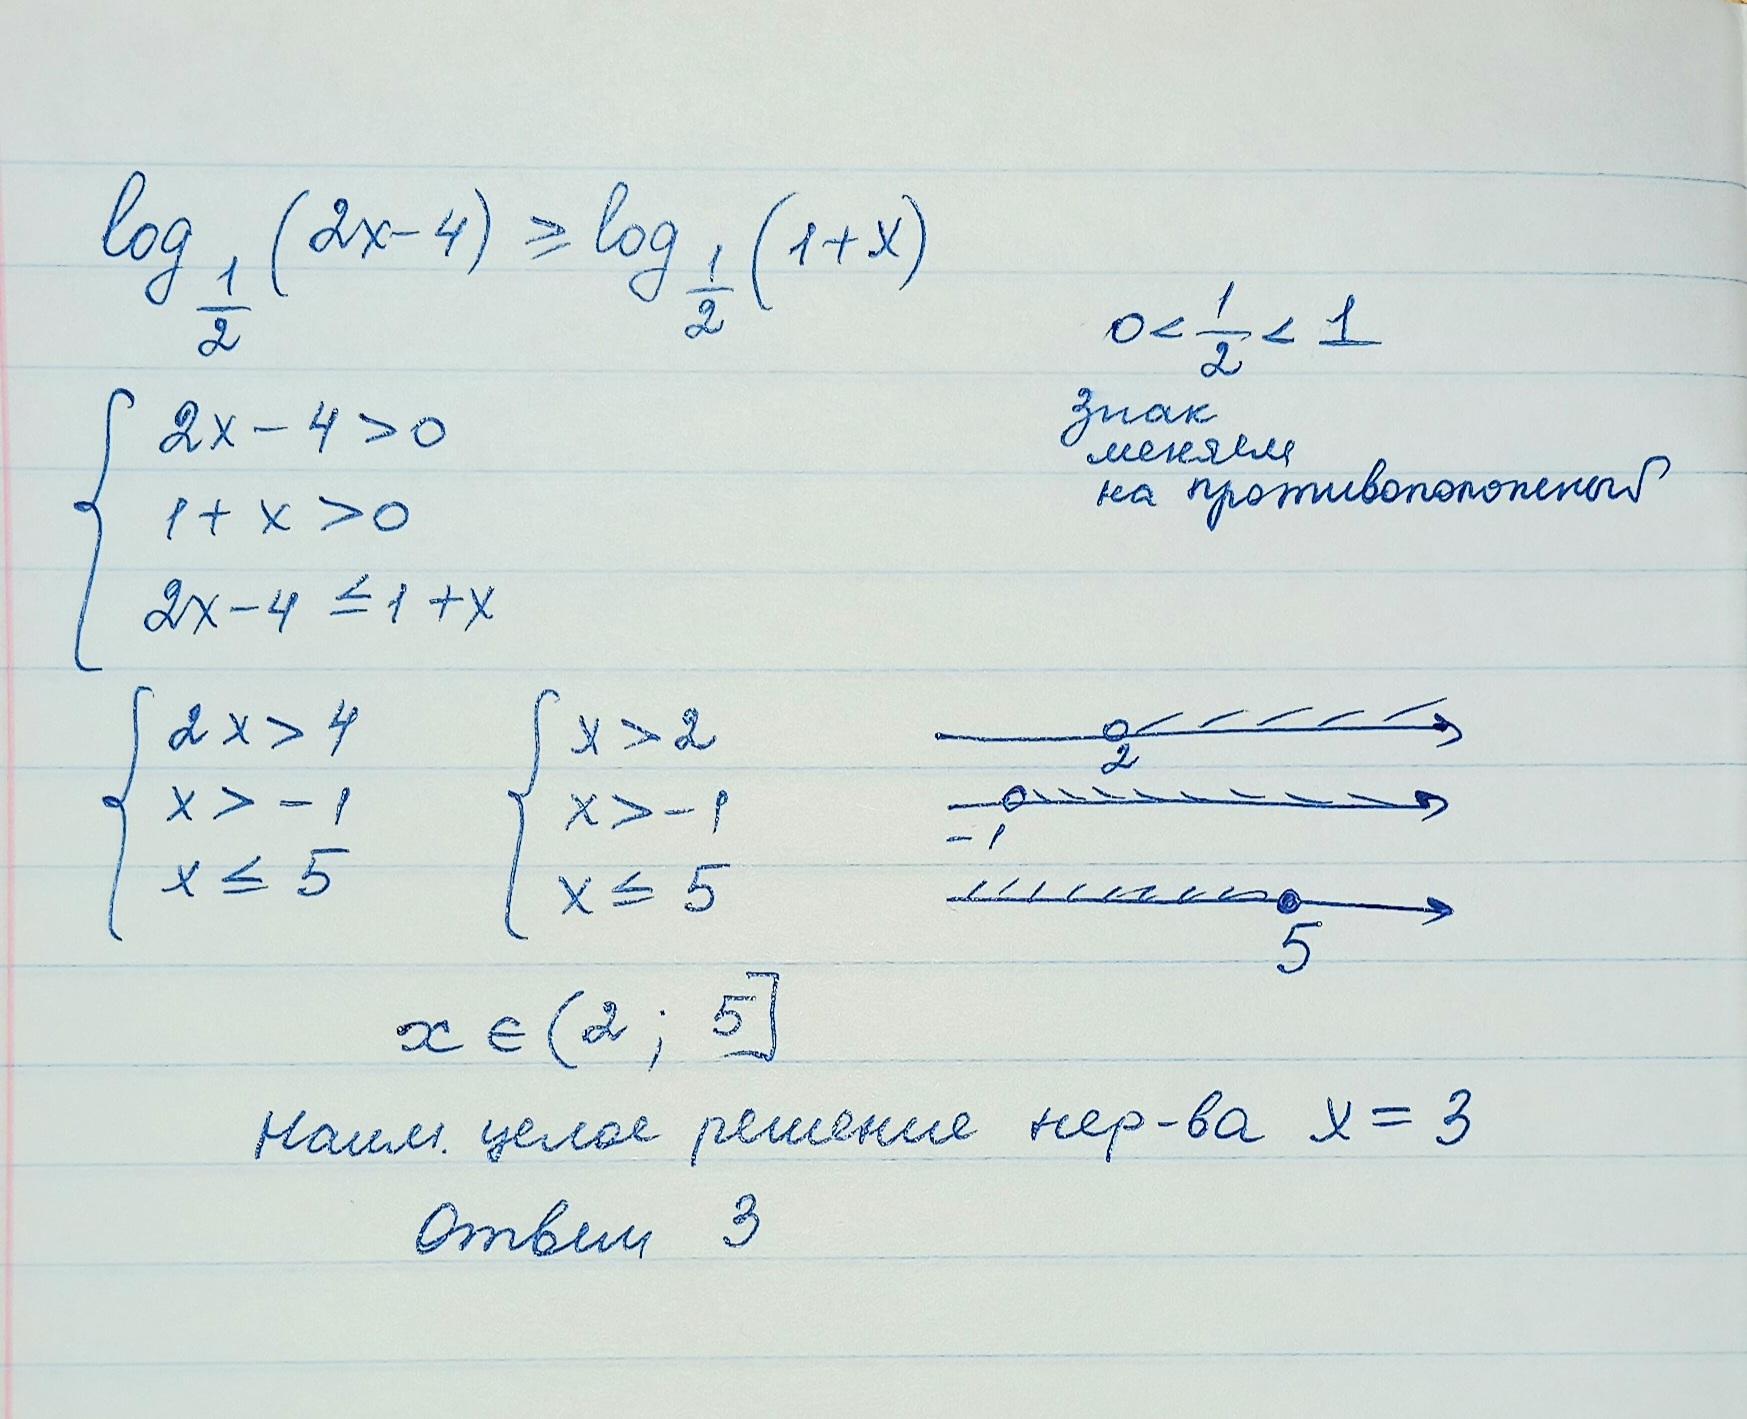 log_{1/2} (2x-4) ≥ log_{1/2} (1+x)
0 < 1/2 < 1
Знак
меняем
на противоположный
2x - 4 > 0
1 + x > 0
2x - 4 ≤ 1 + x
2x > 4
x > -1
x ≤ 5
x > 2
x > -1
x ≤ 5
2
-1
5
x ∈ (2; 5]
Наим. целое решение нер-ва x = 3
Ответ 3